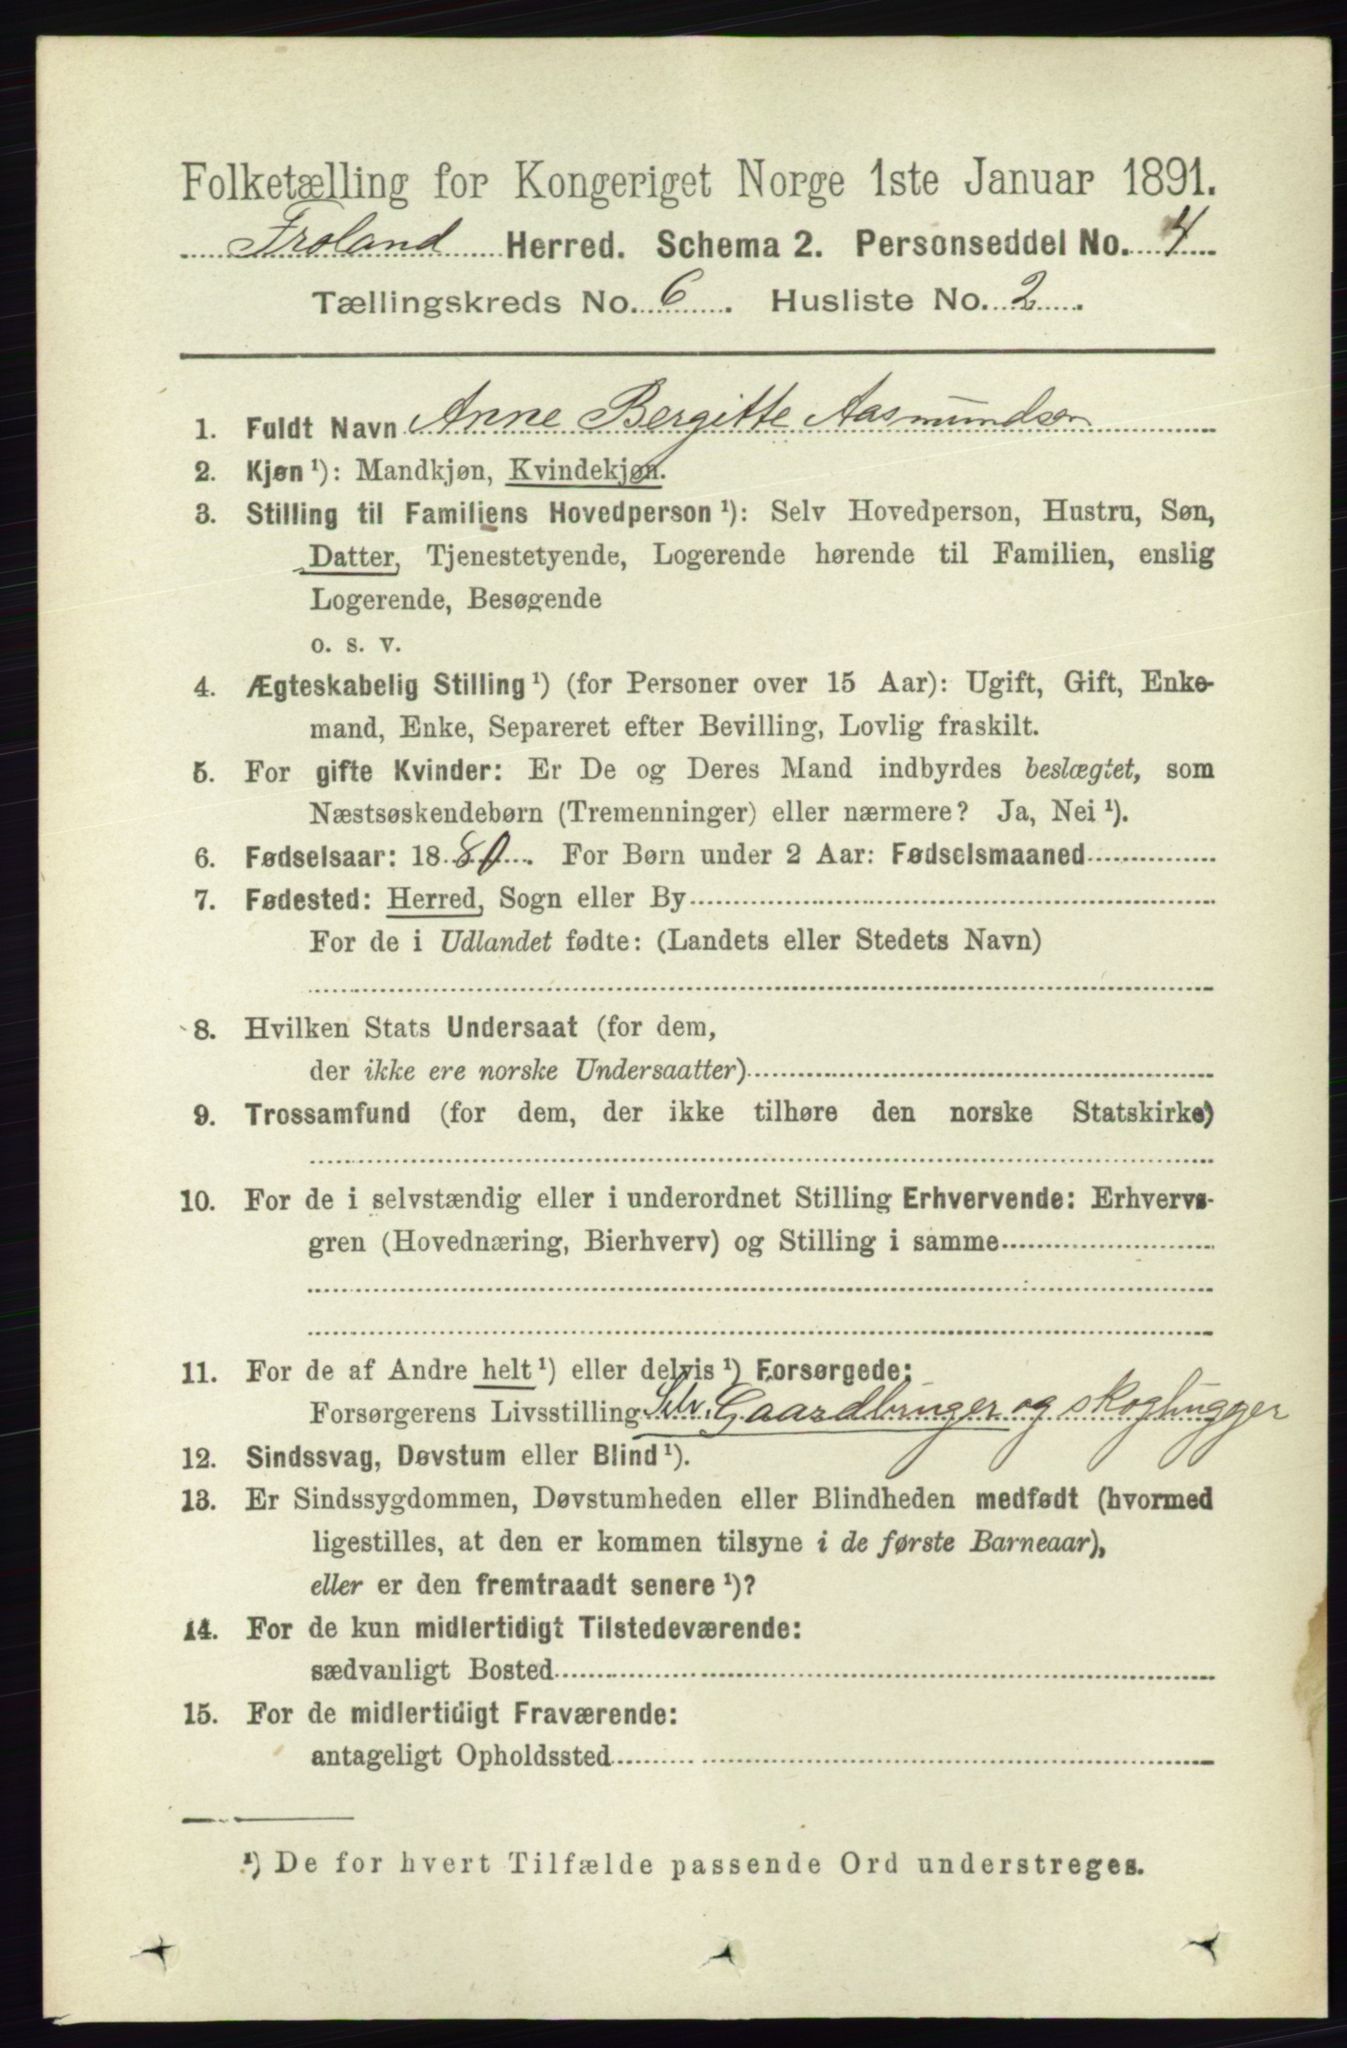 Folketælling for Kongeriget Norge 1ste Januar 1891.
Froland Herred. Schema 2. Personseddel No. 4
Tællingskreds No. 6. Husliste No. 2.
1. Fuldt Navn Anne Bergitte Aasmundsen
2. Kjøn ¹): Mandkjøn, Kvindekjøn.
3. Stilling til Familiens Hovedperson ¹): Selv Hovedperson, Hustru, Søn,
Datter, Tjenestetyende, Logerende hørende til Familien, enslig
Logerende, Besøgende
o. s. v.
4. Ægteskabelig Stilling ¹) (for Personer over 15 Aar): Ugift, Gift, Enke-
mand, Enke, Separeret efter Bevilling, Lovlig fraskilt.
5. For gifte Kvinder: Er De og Deres Mand indbyrdes beslægtet, som
Næstsøskendebørn (Tremenninger) eller nærmere? Ja, Nei ¹).
6. Fødselsaar: 1880. For Børn under 2 Aar: Fødselsmaaned
7. Fødested: Herred, Sogn eller By
For de i Udlandet fødte: (Landets eller Stedets Navn)
8. Hvilken Stats Undersaat (for dem,
der ikke ere norske Undersaatter)
9. Trossamfund (for dem, der ikke tilhøre den norske Statskirke)
10. For de i selvstændig eller i underordnet Stilling Erhvervende: Erhvervs-
gren (Hovednæring, Bierhverv) og Stilling i samme
11. For de af Andre helt ¹) eller delvis ¹) Forsørgede:
Forsørgerens Livsstilling Selv. Gaardbruger og skoghugger
12. Sindssvag, Døvstum eller Blind ¹).
13. Er Sindssygdommen, Døvstumheden eller Blindheden medfødt (hvormed
ligestilles, at den er kommen tilsyne i de første Barneaar),
eller er den fremtraadt senere ¹)?
14. For de kun midlertidigt Tilstedeværende:
sædvanligt Bosted
15. For de midlertidigt Fraværende:
antageligt Opholdssted
¹) De for hvert Tilfælde passende Ord understreges.